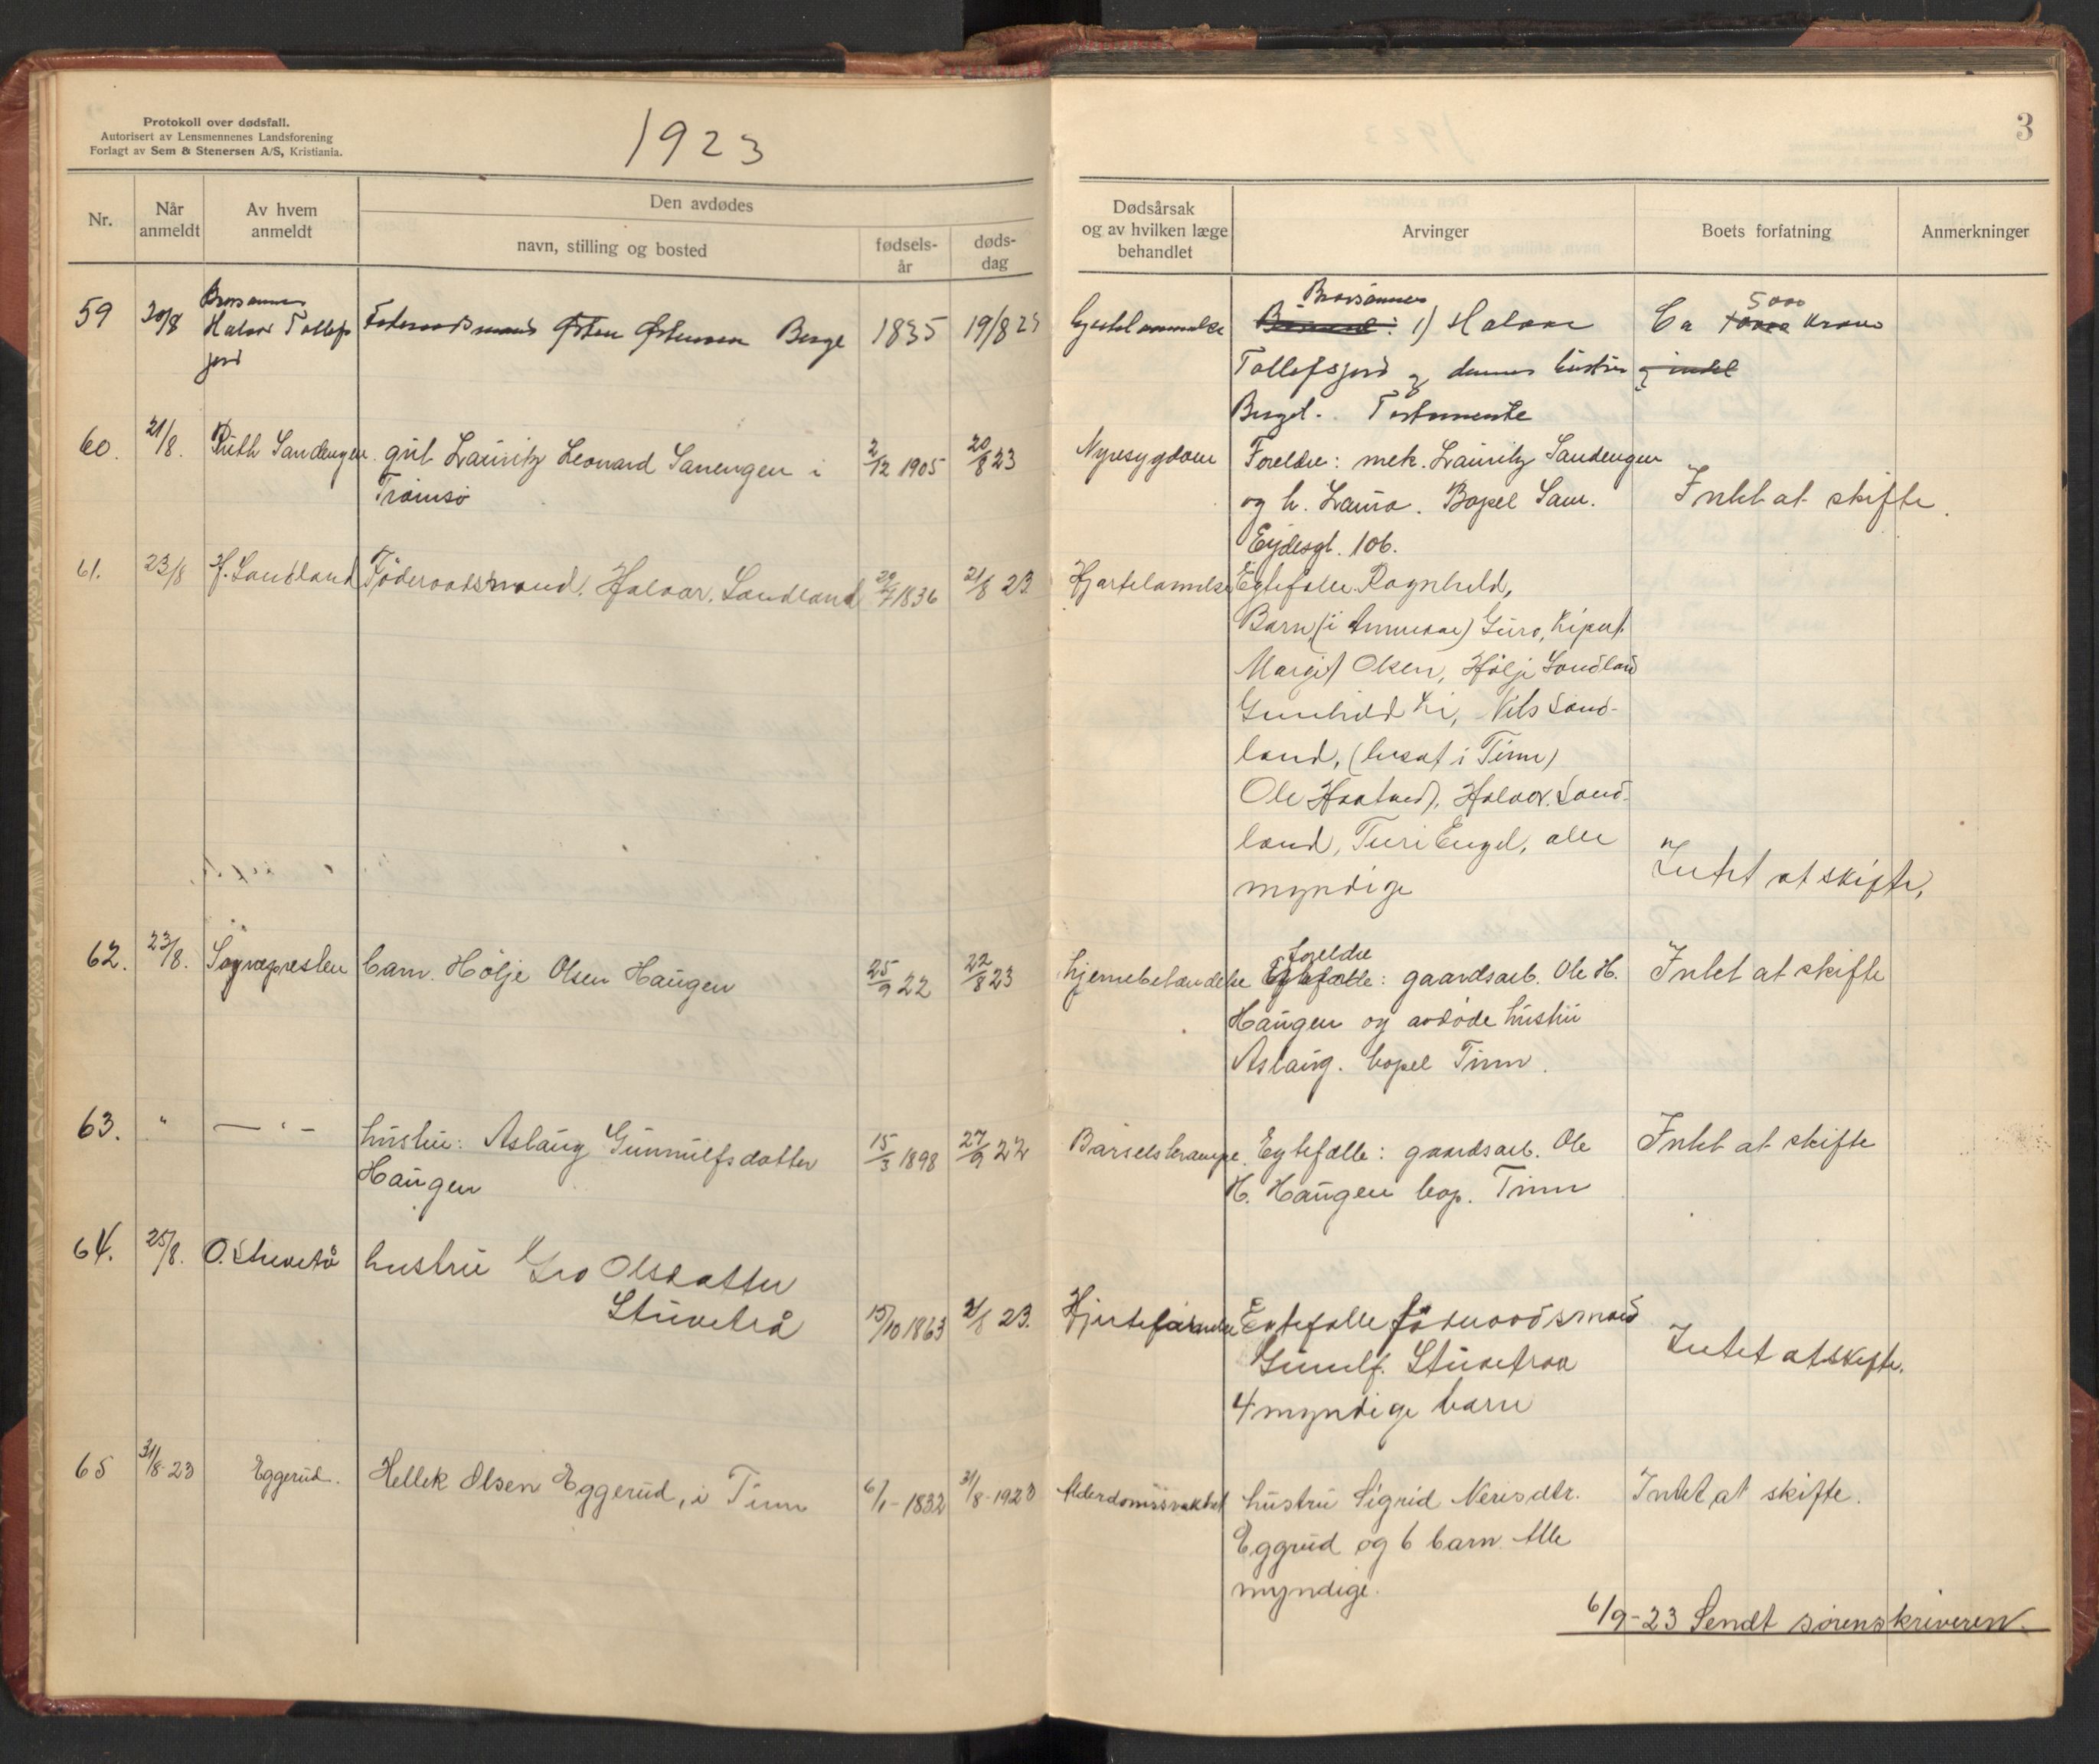 Protokoll over dødsfall.
Autorisert av Lensmennenes Landsforening
Forlagt av Sem & Stenersen A/S, Kristiania.
1923
3
Nr.
Når anmeldt
Av hvem anmeldt
Den avdødes
navn, stilling og bosted
fødsels-år
døds-dag
Dødsårsak og av hvilken læge behandlet
Arvinger
Boets forfatning
Anmerkninger
59 20/8 Halvor Tollefsjord Østen Østensen Berge 1835 19/8 23
Brorsønner 1) Halvor
Tollefsjord og dennes hustru
Berget. Testamente
Ca 5000 kroner
60. 21/8. Ruth Sandengen gut Lauritz Leonard Sanengen i
Tromsø
2/12 1905 20/8 23 Nyresygdom
Foreldre: mek. Lauritz Sandengen
og h. Laura. Bopel Sam.
Eydesgt. 106.
Intet at skifte.
61. 23/8 H. Sandland Föderaadsmand. Halvor. Sandland 29/7 1836 21/8 23 Hjertelammelse
Egtefelle Ragnhild,
Barn (i Amerika) Guro,
Margit Olsen, Hölje Sandland
Gunhild Li, Nils Sand-
land, (bosat i Tinn)
Ole Haatved, Halvor Sand-
land, Turi Engel, alle
myndige
Intet at skifte,
62. 23/8. Sognepresten barn. Hölje Olsen Haugen 25/9 22 22/8 23 hjernebetændelse
Foreldre
Egtefælle: gaardsarb. Ole H.
Haugen og avdøde hustru
Aslaug. bopel Tinn.
Intet at skifte
63. " — " — hustru: Aslaug Gunnulfsdatter
Haugen
15/3 1898 27/9 22 Barselskrampe.
Egtefælle: gaardsarb. Ole
H. Haugen bop. Tinn
Intet at skifte
64. 25/8. hustru Gro Olsdatter
Stuvetrå
15/10 1863 21/8 23.
Egtefelle föderaadsmand
Gunulf. Stuvetraa
4 myndige barn
Intet at skifte.
65 31/8-23 Eggerud. Hellek Olsen Eggerud, i Tinn 6/1-1832 31/8-1923 Alderdomssvakhet
hustru Sigrid Nerisdtr.
Eggrud og 6 barn. Alle
myndige.
Intet at skifte.
6/9-23 Sendt sorenskriveren.